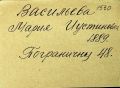 Васильева 1530
Мария Иустинов
1889.
Пограничн 48.